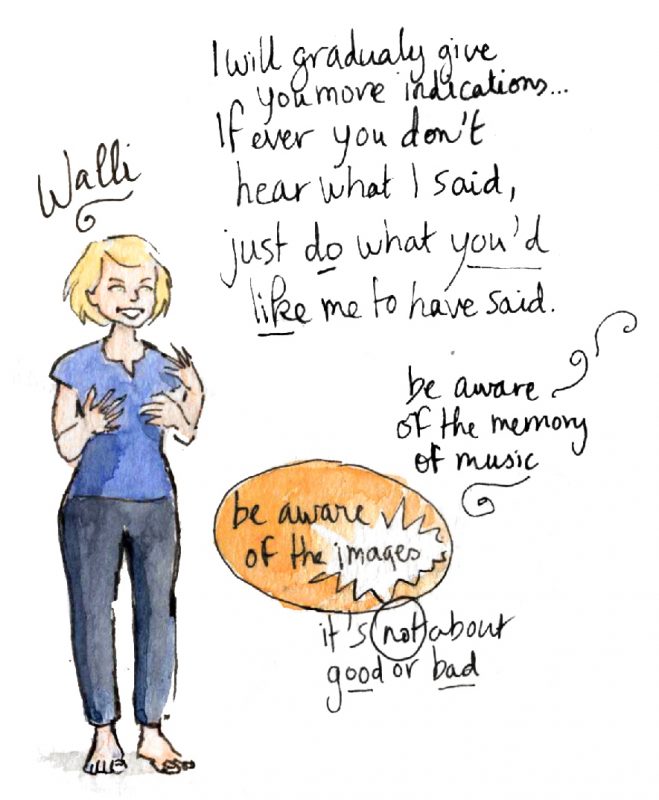 I will gradualy give
you more indications...
If ever you don't
hear what I said,
just do what you'd
like me to have said.
Walli
be aware
of the memory
of music
be aware
of the images
it's not about
good or bad